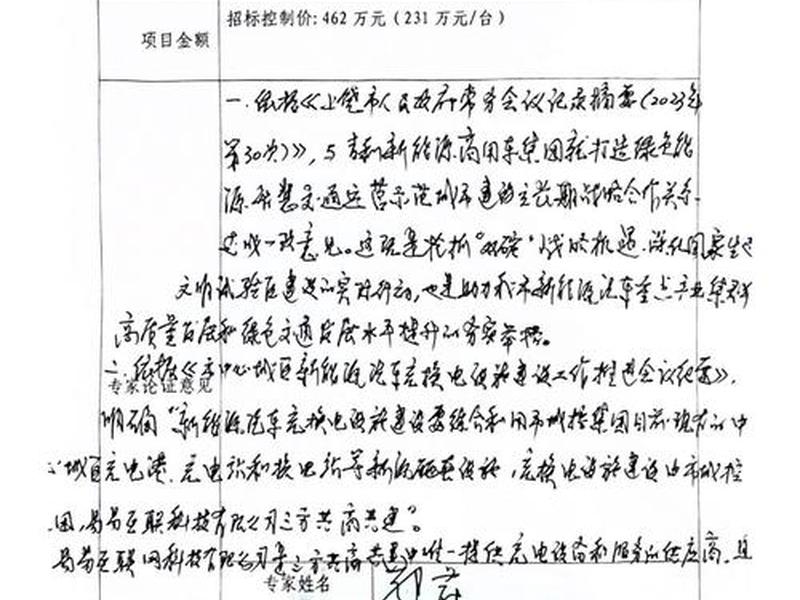 招标控制价: 462 万元 ( 231 万元/台 )
项目金额
一、依据《上饶市人民政府常务会议记录摘要(2023年
第30次)》, 与吉利新能源商用车集团就打造绿色能
源智慧交通运营示范城市建设立长期战略合作关系
达成一致意见。这既是抢抓"双碳"战略机遇、深化国家生态
文明试验区建设的实际行动,也是助力我市新能源汽车重点产业集群
高质量发展和绿色交通发展水平提升的务实举措。
二、依据《中心城区新能源汽车充换电设施建设工作推进会议纪要》,
专家论证意见
明确"新能源汽车充换电设施建设要综合利用市城控集团目前现有的中
心城区充电港、充电站和换电站等新能源设施,充换电设施建设由市城控
团,易易互联科技有限公司三方共商共建"。
易易互联网科技有限公司是三方共商共建中唯一提供充电设备和服务的供应商,且
专家姓名